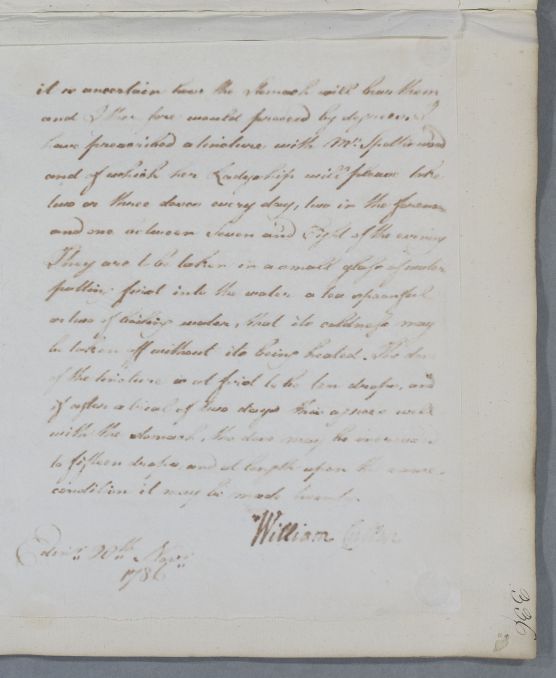 it is uncertain how the Stomach will bear them
and I therefore would proceed by degrees. I
have prescribed a tincture with Mr. Spottiswood
and of which her Ladyship will please take
two or three doses every day, two in the forenoon
and one between Seven and Eight of the evening
They are to be taken in a small glass of water
putting first into the water a tea spoonful
or two of boiling water, that its coldness may
be taken off without its being heated. The dose
of the tincture is at first to be ten drops, and
if after a trial of two days this agrees well
with the stomach, the dose may be increased
to fifteen drops, and at length upon the same
condition it may be made twenty.
William Cullen
Edinr. 20th Novr.
1786
336